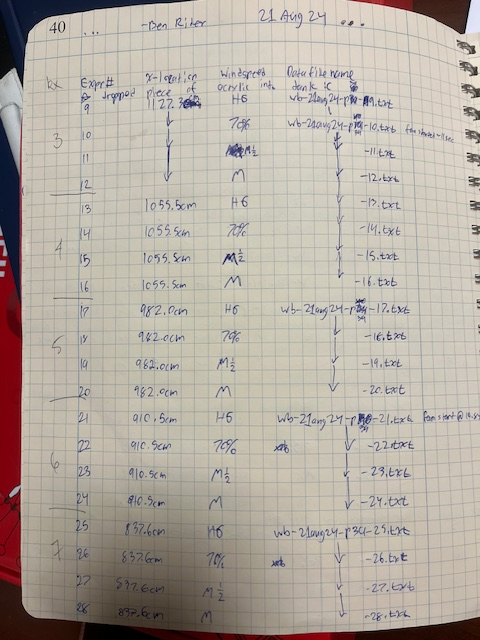 40 ... -Ben Riher 21 Aug 24 ...
Expr# x-location Windspeed Data file name
dropped piece of acrylic into tank @
9 1127.3 H6 wb-21aug24-p39-9.txt
3 10 70% wb-21aug24-p39-10.txt fan started ~11sec
11 M½ -11.txt
12 M -12.txt
13 1055.5cm H6 -13.txt
4 14 1055.5cm 70% -14.txt
15 1055.5cm M½ -15.txt
16 1055.5cm M -16.txt
17 982.0cm H6 wb-21aug24-p39-17.txt
5 18 982.0cm 70% -18.txt
19 982.0cm M½ -19.txt
20 982.0cm M -20.txt
21 910.5cm H6 wb-21aug24-p39-21.txt fan start @
6 22 910.5cm 70% -22.txt
23 910.5cm M½ -23.txt
24 910.5cm M -24.txt
25 837.6cm H6 wb-21aug24-p39-25.txt
7 26 837.6cm 70% -26.txt
27 837.6cm M½ -27.txt
28 837.6cm M -28.txt